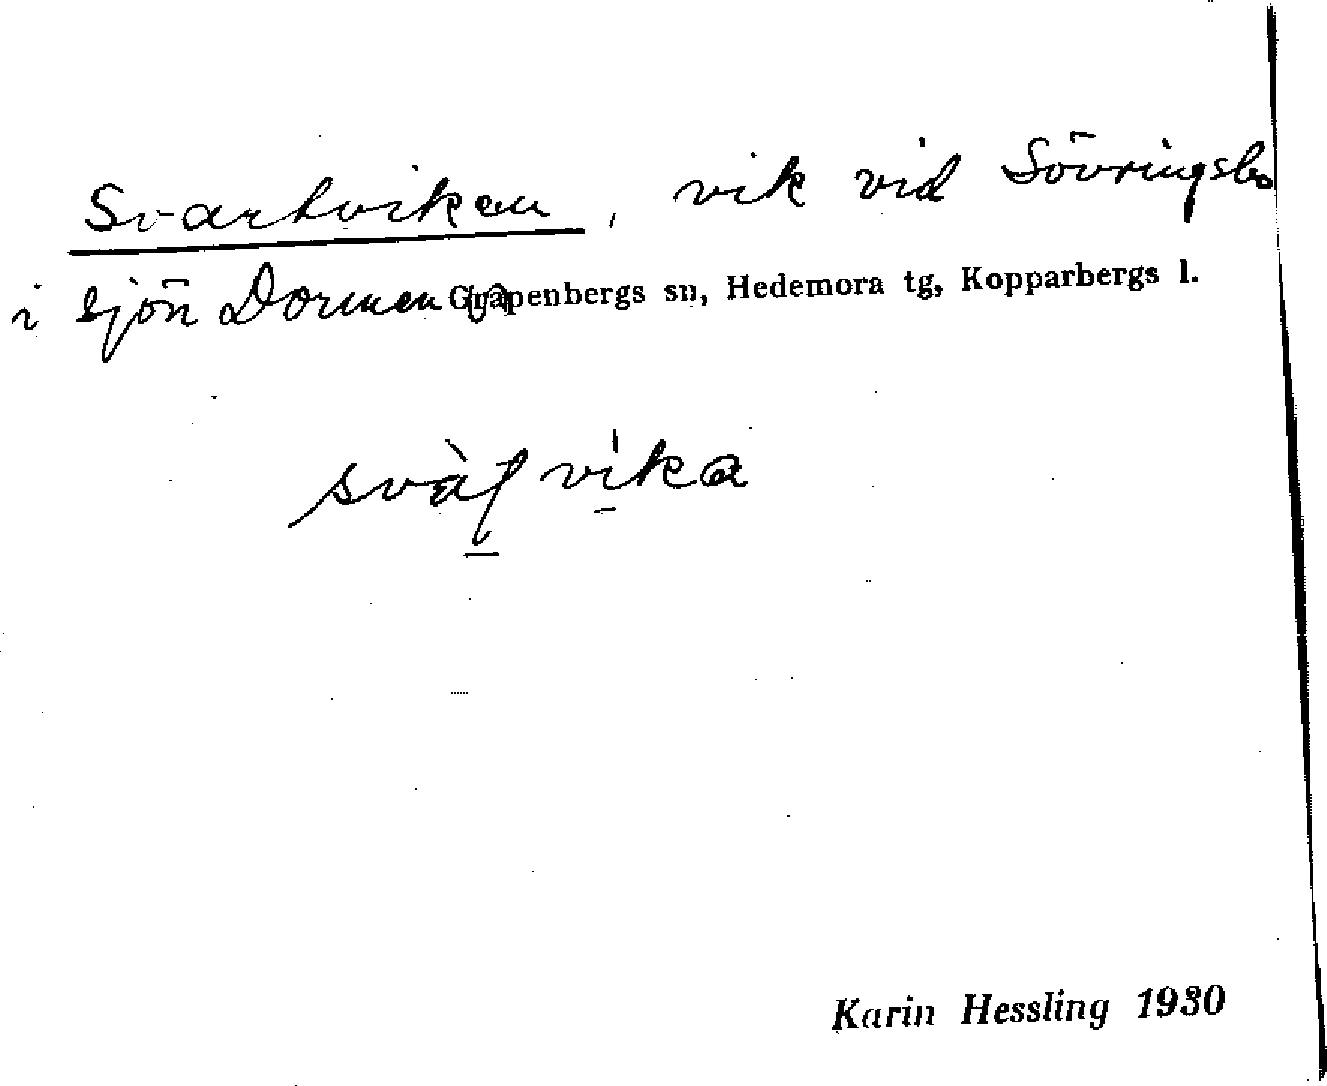 Svartviken, vik vid Sövringsbo
i sjön Dormen Grapenbergs sn, Hedemora tg, Kopparbergs l.
Karin Hessling 1930